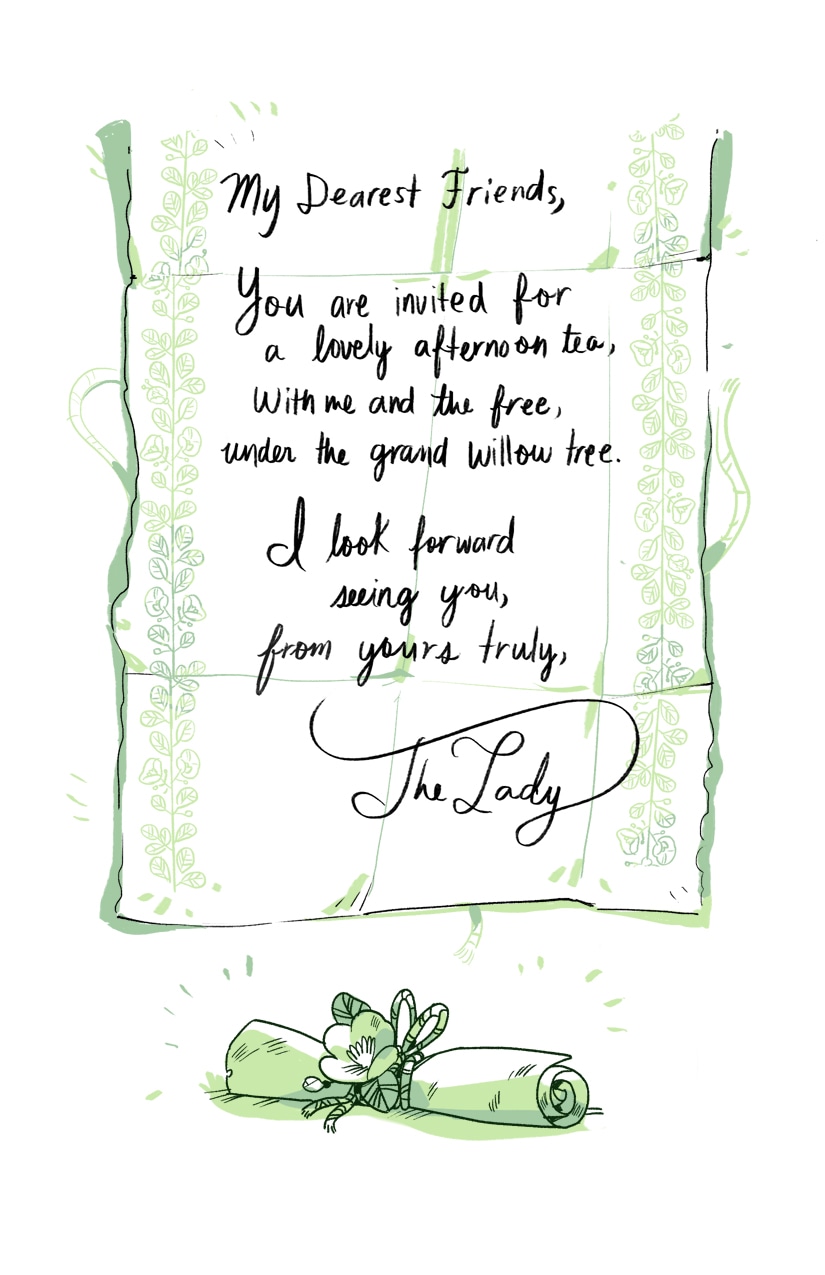 My Dearest Friends,
You are invited for
a lovely afternoon tea,
With me and the free,
under the grand willow tree.
I look forward
seeing you,
from yours truly,
The Lady